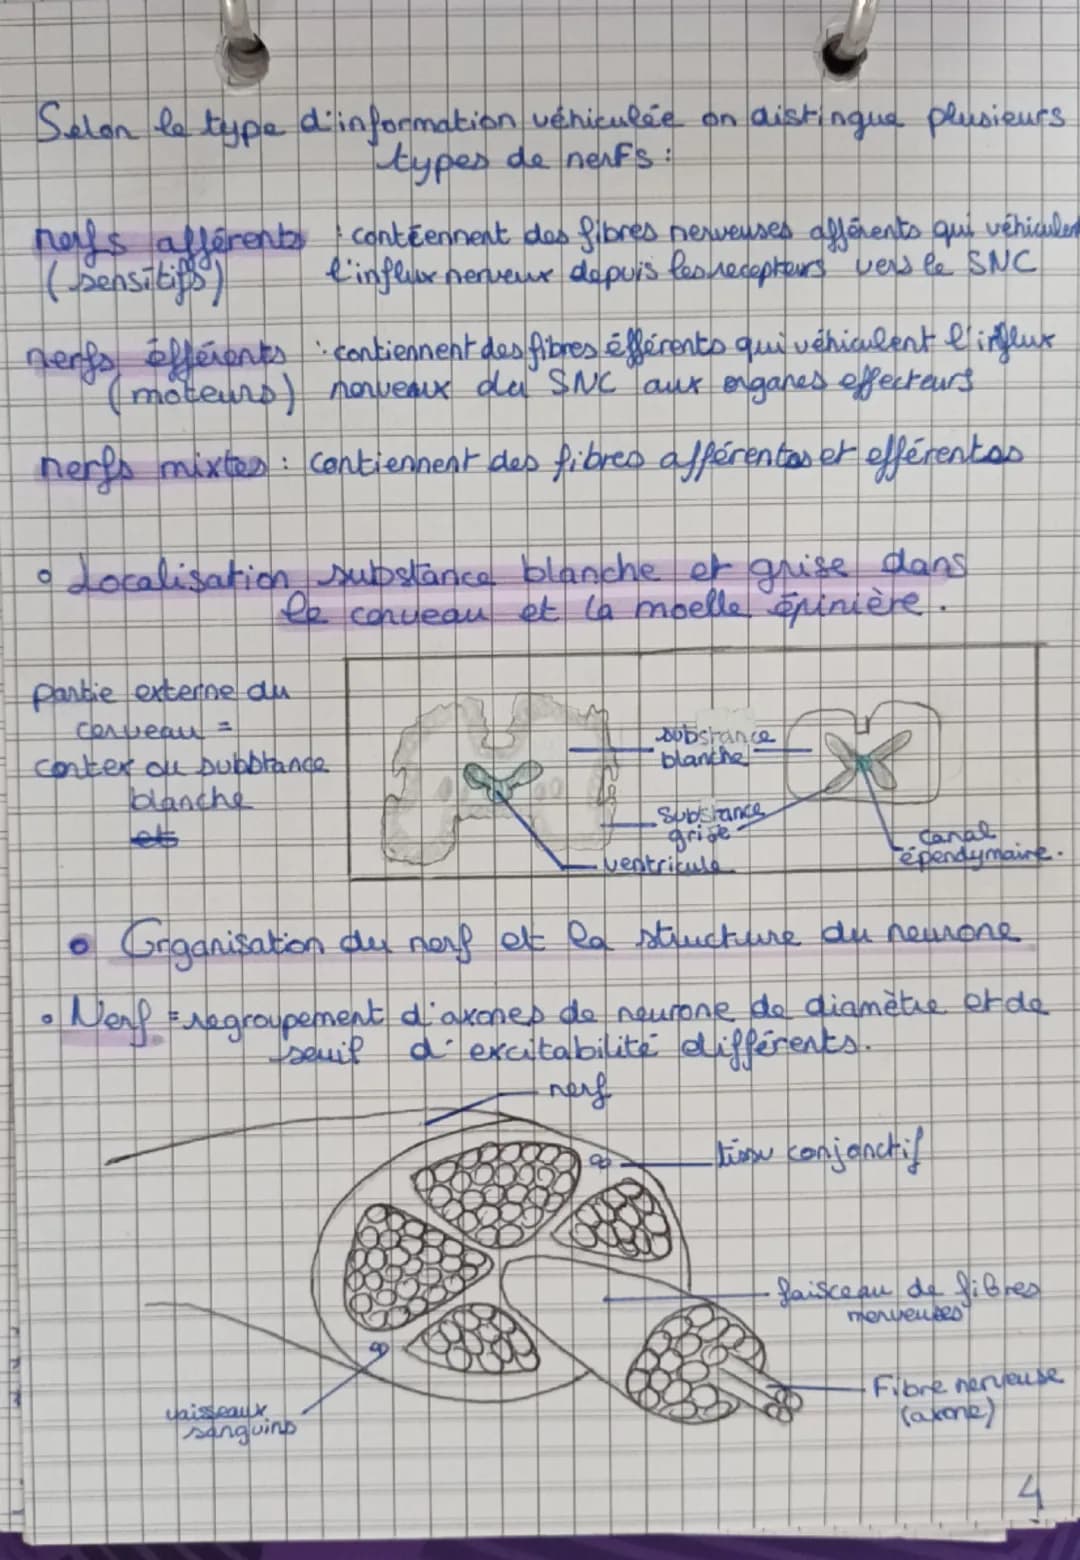 Selon le type d'information véhiculée on distingue plusieurs
types de nerfs :
nerfs afférents : contiennent des fibres nerveuses afférents qui véhiculent
(sensitifs) l'influx nerveux depuis les recepteurs vers le SNC
nerfs éfférents : contiennent des fibres éfférents qui véhiculent l'influx
(moteurs) nerveux du SNC aux organes effecteurs
nerfs mixtes : contiennent des fibres afférentes et efférentes
Localisation substance blanche et grise dans
le cerveau et la moelle épinière.
partie externe du
cerveau =
cortex ou substance
blanche
et
substance
blanche
substance
grise
ventricule
canal
épendymaire.
Organisation du nerf et la structure du neurone
Nerf = regroupement d'axones de neurone de diamètre et de
seuil d'excitabilité différents.
nerf
tissu conjonctif
faisceau de fibres
nerveuses
Fibre nerveuse
(axone)
vaisseaux
sanguins
4